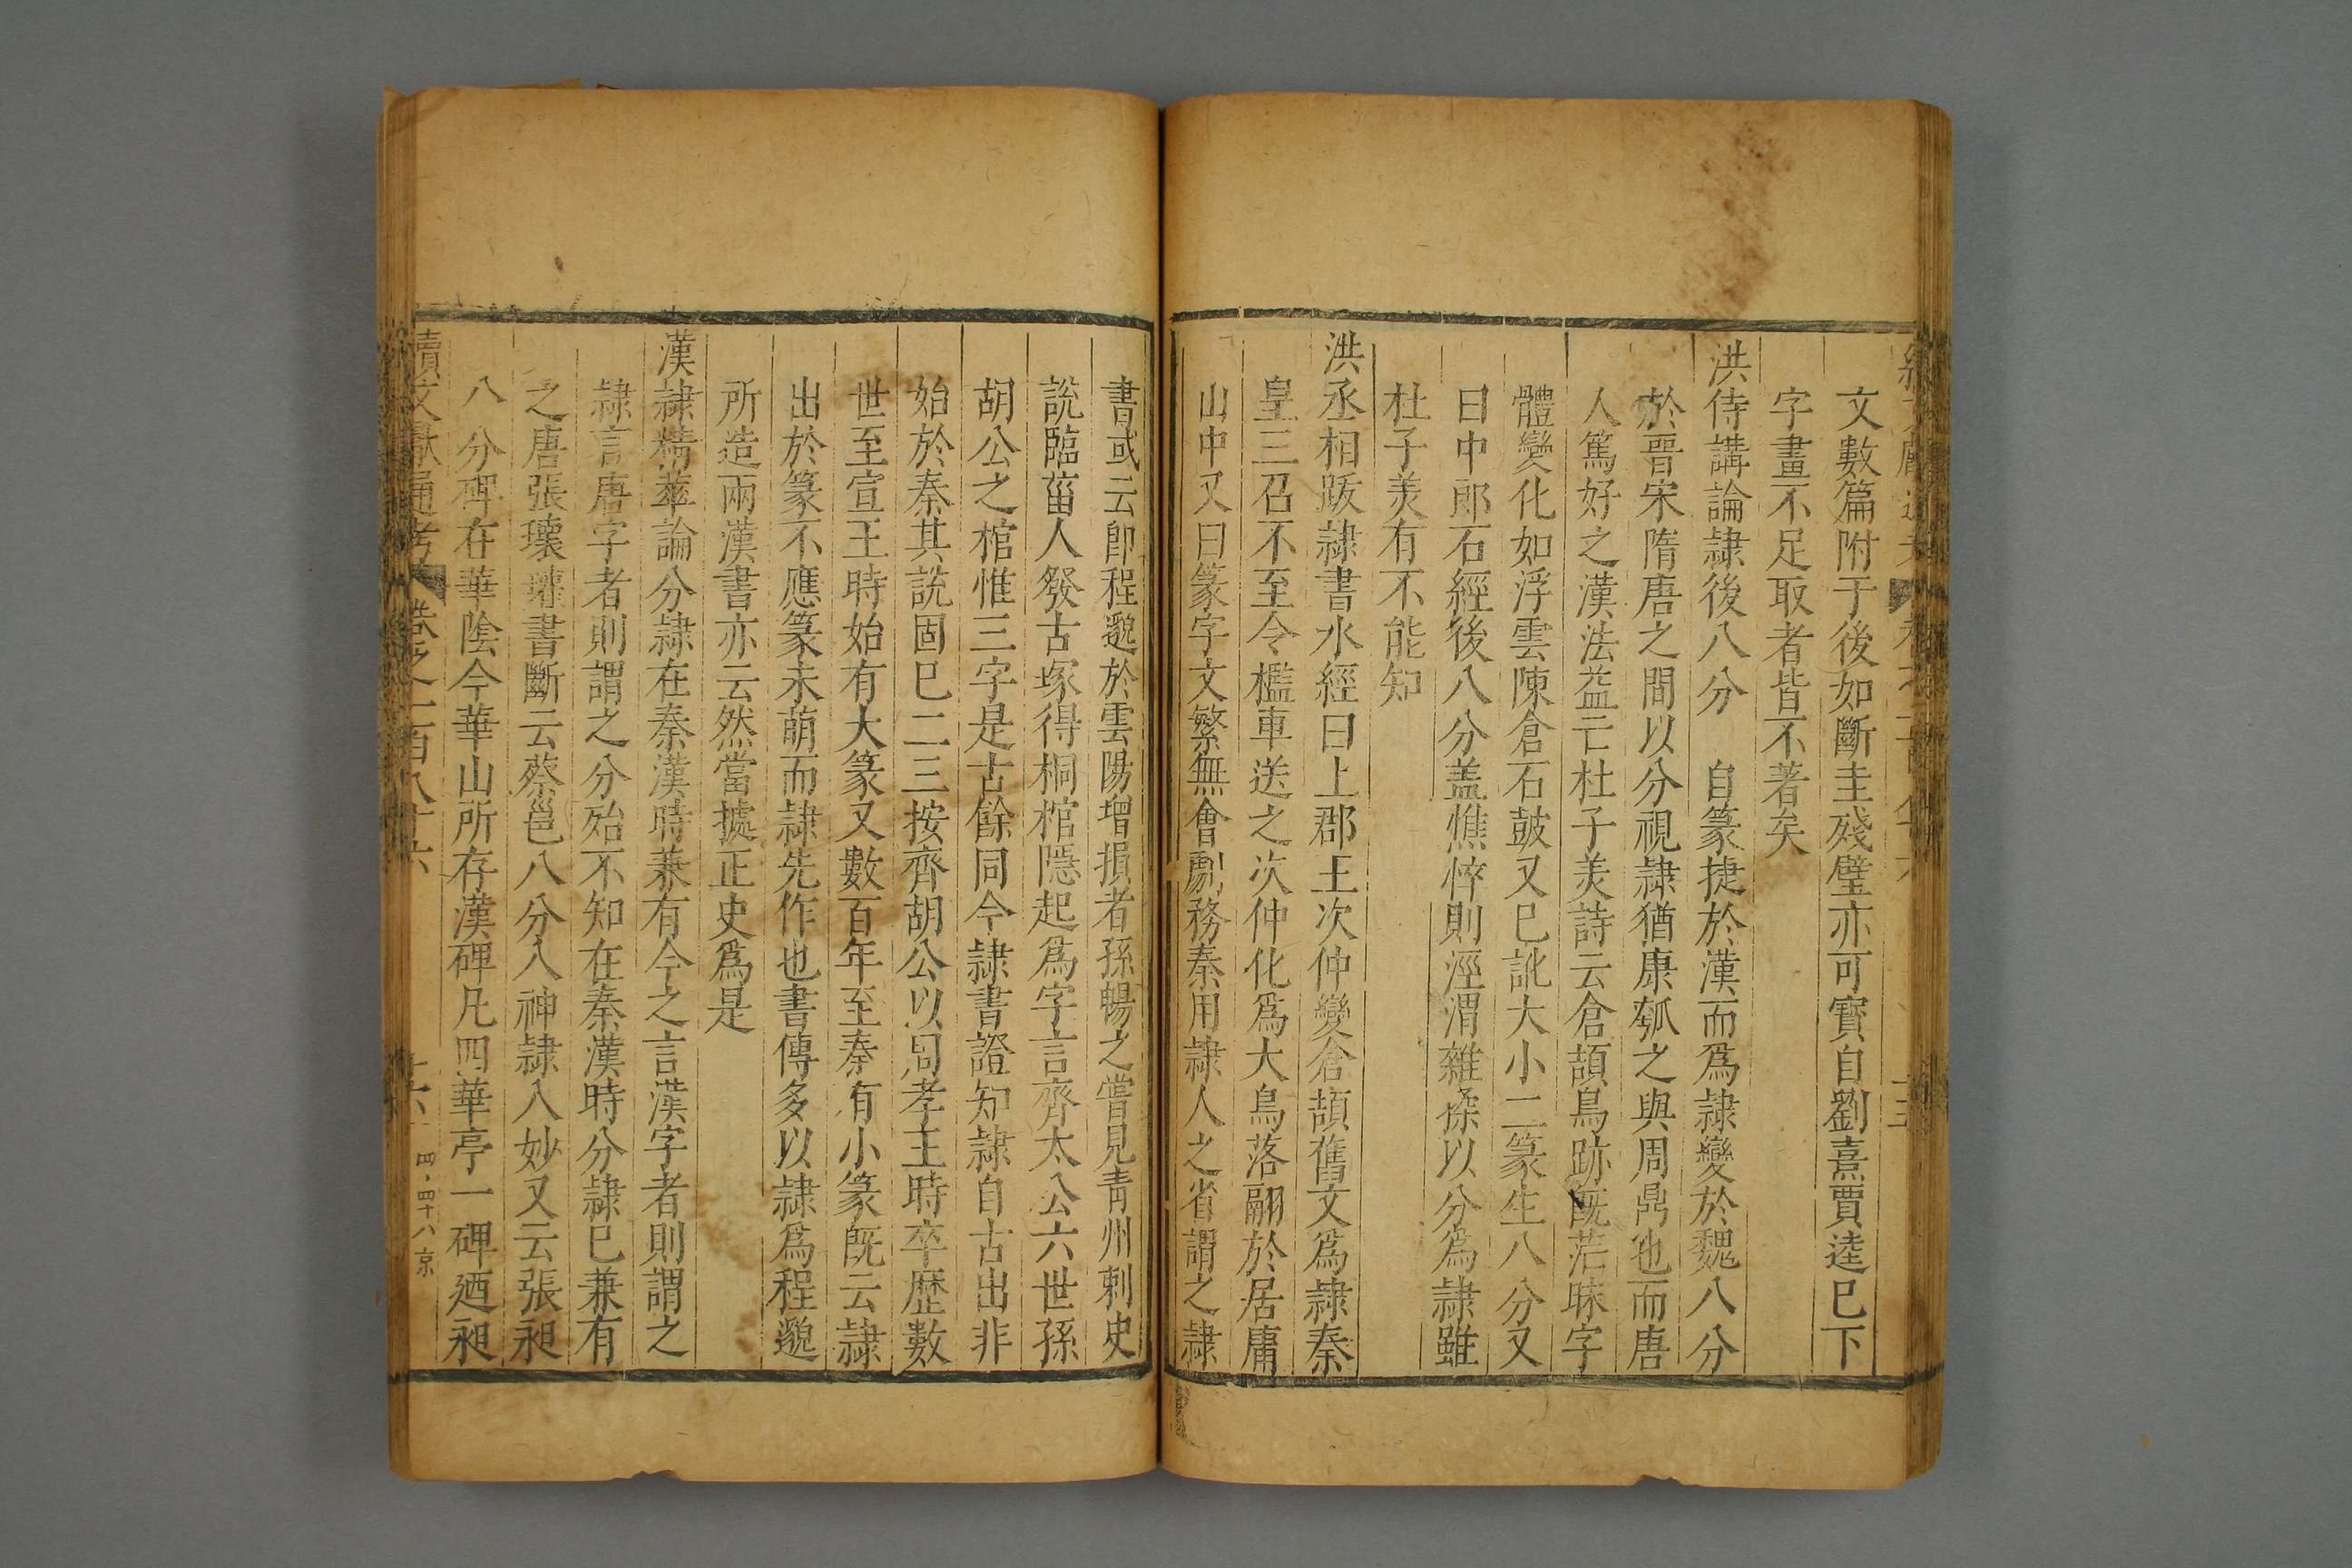 文數篇附于後如斷圭殘璧亦可寶自劉熹賈逵已下
字畫不足取者皆不著矣
洪侍講論隷後八分　自篆捷於漢而爲隷變於魏八分
於晋宋隋唐之間以分視隷猶康瓠之與周鼎也而唐
人篤好之漢法益亡杜子美詩云倉頡鳥跡既茫昧字
體變化如浮雲陳倉石鼓又已訛大小二篆生八分又
曰中郎石經後八分盖憔悴則涇渭雜揉以分爲隷雖
杜子美有不能知
洪丞相跋隷書水經曰上郡王次仲變倉頡舊文爲隷秦
皇三召不至令檻車送之次仲化爲大鳥落翮於居庸
山中又曰篆字文繁無會劇務秦用隷人之省謂之隷
書或云卽程邈於雲陽增損者孫暢之嘗見青州刺史
說臨菑人發古塚得桐棺隱起爲字言齊太公六世孫
胡公之棺惟三字是古餘同今隷書證知隷自古出非
始於秦其說固巳二三按齊胡公以周孝王時卒歷數
世至宣王時始有大篆又數百年至秦有小篆旣云隷
出於篆不應篆未萌而隷先作也書傳多以隷爲程邈
所造兩漢書亦云然當據正史爲是
漢隷精華論分隷在秦漢時兼有今之言漢字者則謂之
隷言唐字者則謂之分殆不知在秦漢時分隷巳兼有
之唐張瓌瓘書斷云蔡邕八分入神隷入妙又云張昶
八分碑在華陰今華山所存漢碑凡四華亭一碑廼昶
續文獻通考　卷之一百八十六
四·四十八京